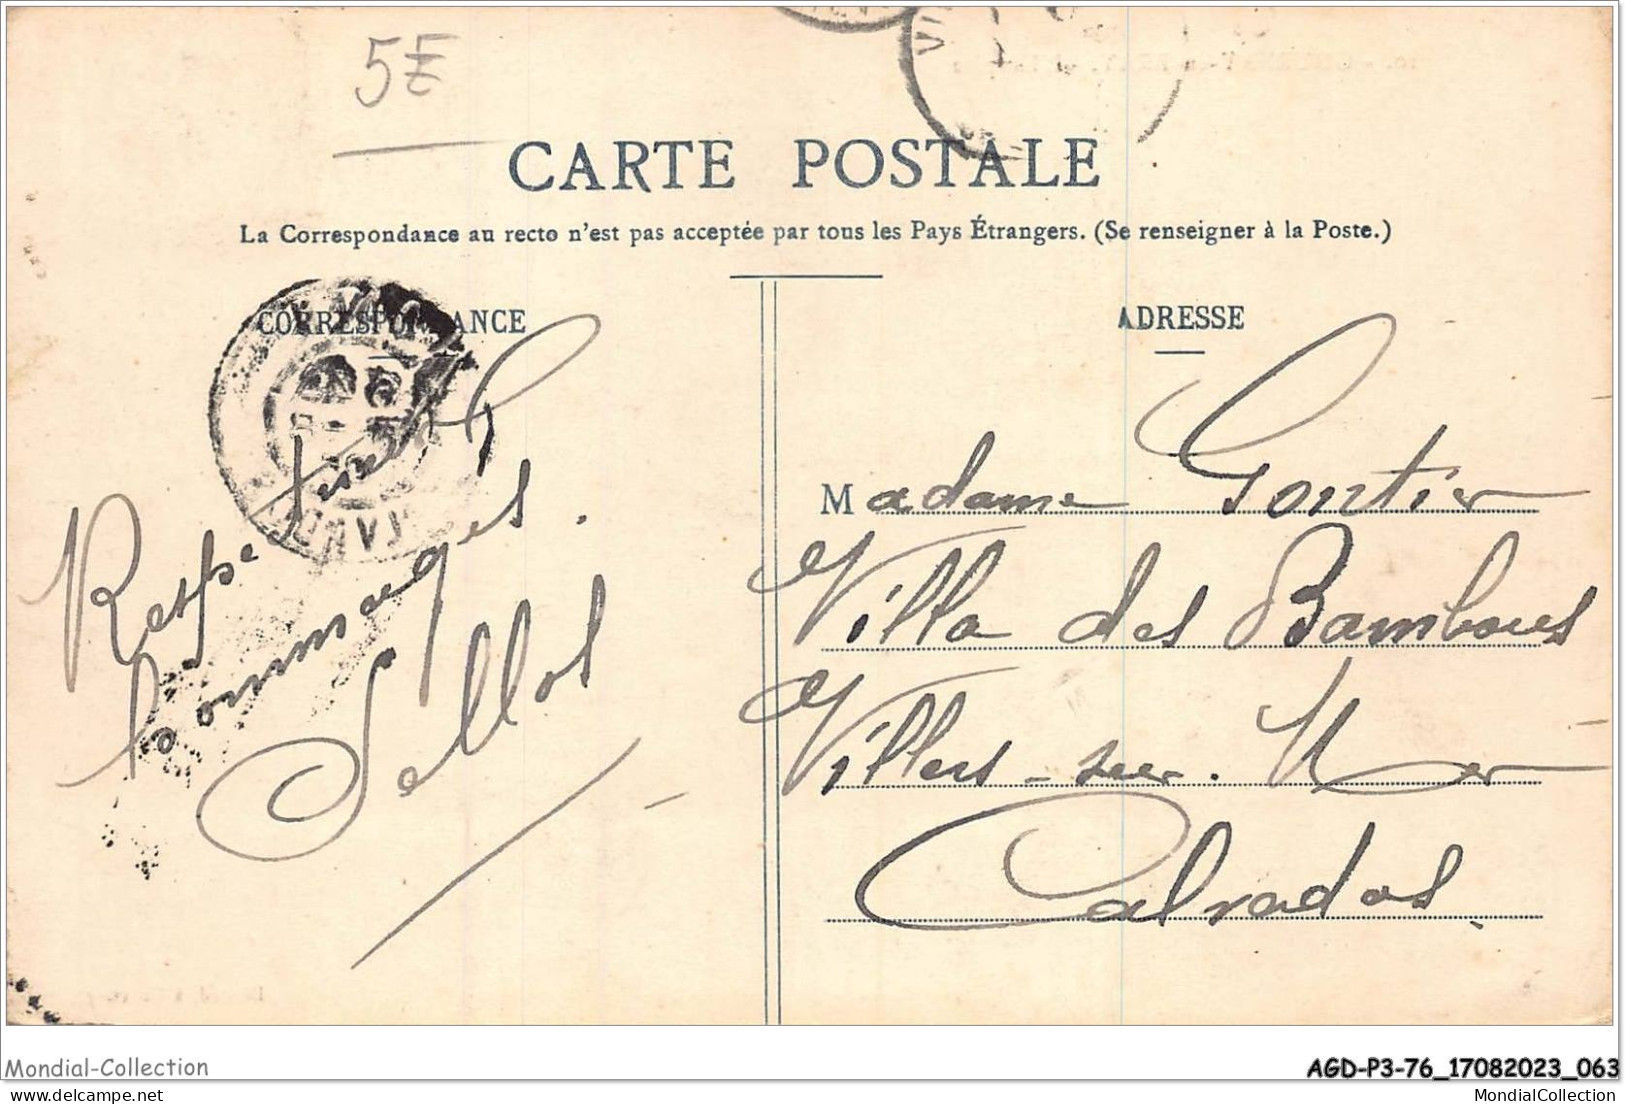 5E
CARTE POSTALE
La Correspondance au recto n'est pas acceptée par tous les Pays Étrangers. (Se renseigner à la Poste.)
CORRESPONDANCE
Respectueux
hommages.
Sellos
ADRESSE
Madame Gontier
Villa des Bambous
Villers-sur-Mer
Calvados.
Mondial-Collection
AGD-P3-76_17082023_063
MondialCollection